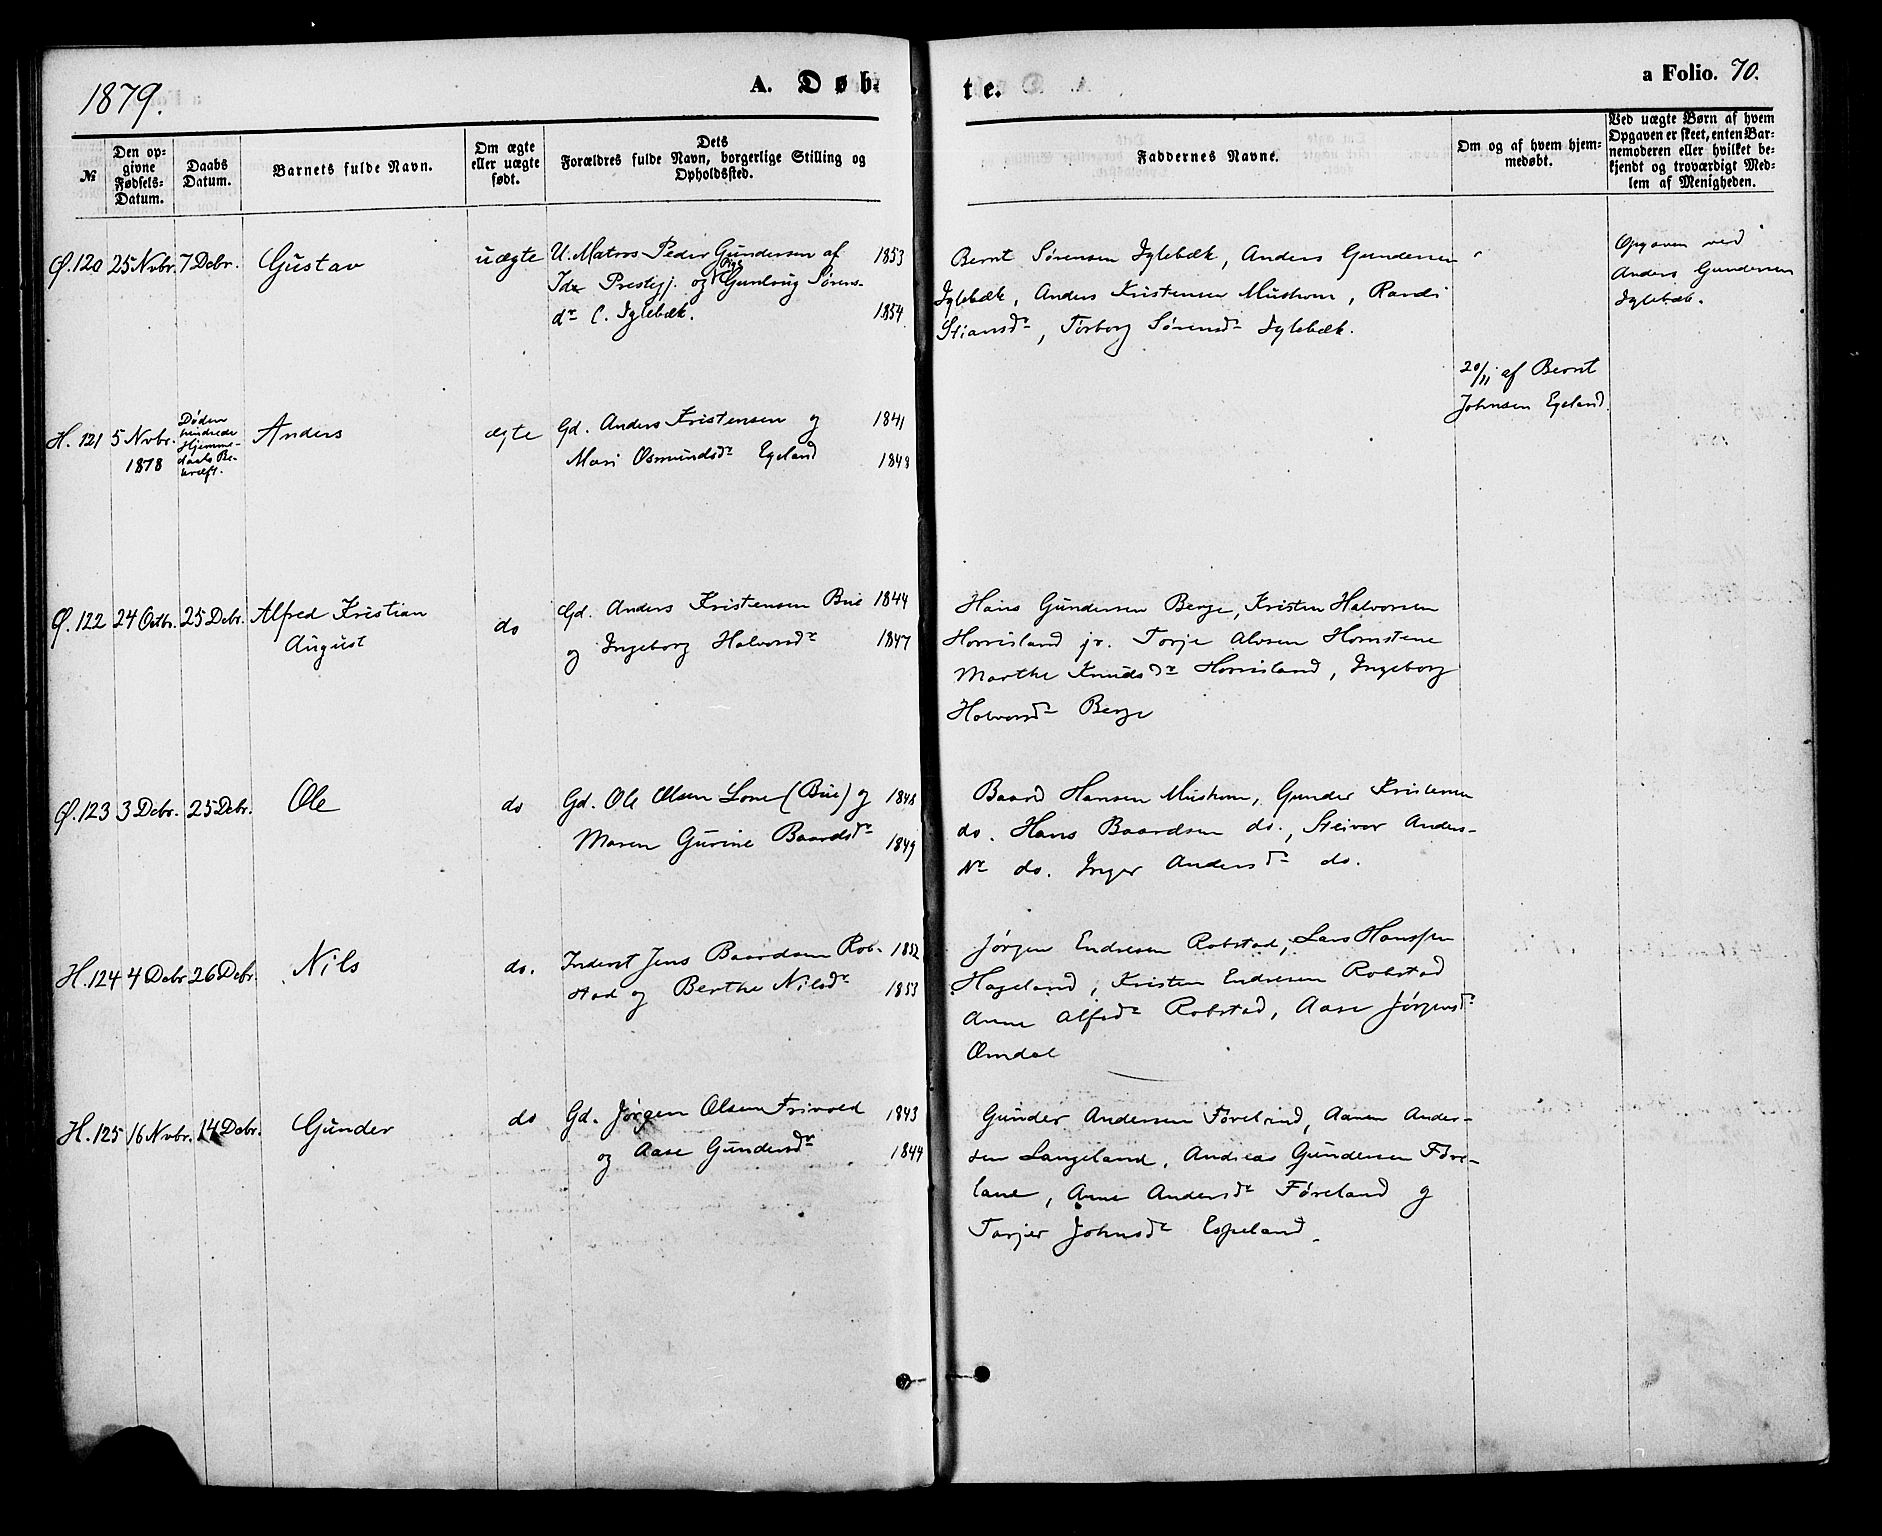 1879.
A. Døbte.
a Folio. 70.
№
Den opgivne Fødsels-Datum.
Daabs Datum.
Barnets fulde Navn.
Om ægte eller uægte født.
Dets Forældres fulde Navn, borgerlige Stilling og Opholdssted.
Faddernes Navne.
Om og af hvem hjemmedøbt.
Ved uægte Børn af hvem Opgaven er skeet, enten Barnemoderen eller hvilket bekjendt og troværdigt Medlem af Menigheden.
Ø. 120 25 Nvbr. 7 Debr. Gustav uægte U. Matros Peder Gundersen af 1853
Prestgj. og Pige Gunlaug Sørens-
dr C. Iglebæk. 1854
Bernt Sørensen Iglebæk, Anders Gundersen
Iglebæk, Anders Kristensen Mushom, Randi
Stiansdr, Torborg Sørensdr Iglebæk.
Opgaven ved
Anders Gundersen
Iglebæk.
H. 121 5 Nvbr. 1878
Døden
hindrede
Hjemme-
daabs Be-
kræft.
Anders ægte Gd. Anders Kristensen og 1841
Mari Osmundsdr Egeland 1848
20/11 af Bernt
Johnsen Egeland.
Ø. 122 24 Octbr. 25 Debr. Alfred Kristian do Gd. Anders Kristensen Bue 1844
August og Ingeborg Halvorsdr 1847
Hans Gundersen Berge, Kristen Halvorsen
Horrisland jr. Torje Alvsen Homstene
Marthe Knudsdr Horrisland, Ingeborg
Halvorsdr Berge
Ø. 123 3 Debr. 25 Debr. Ole do Gd. Ole Olsen Lone (Bue) og 1848
Maren Gurine Baardsdr 1849
Baard Hansen Mushom, Gunder Kristensen
do. Hans Baardsen do., Steivor Anders-
dr do. Inger Andersdr do.
H. 124 4 Debr 26 Debr. Nils do. Inderst Jens Baardsen Rob- 1852
stad og Berthe Nilsdr 1853
Jørgen Endresen Robstad, Lars Hanssen
Hageland, Kristen Endresen Robstad
Anne Alfsdr Robstad, Aase Jørgensdr
Omdal
H. 125 16 Nvbr. 14 Debr. Gunder do Gd. Jørgen Olsen Frivold 1843
og Aase Gundersdr 1844
Gunder Andersen Føreland, Aanen Ander-
sen Langeland, Andreas Gundersen Føre-
land, Anne Andersdr Føreland og
Torjer Johnsdr Espeland.